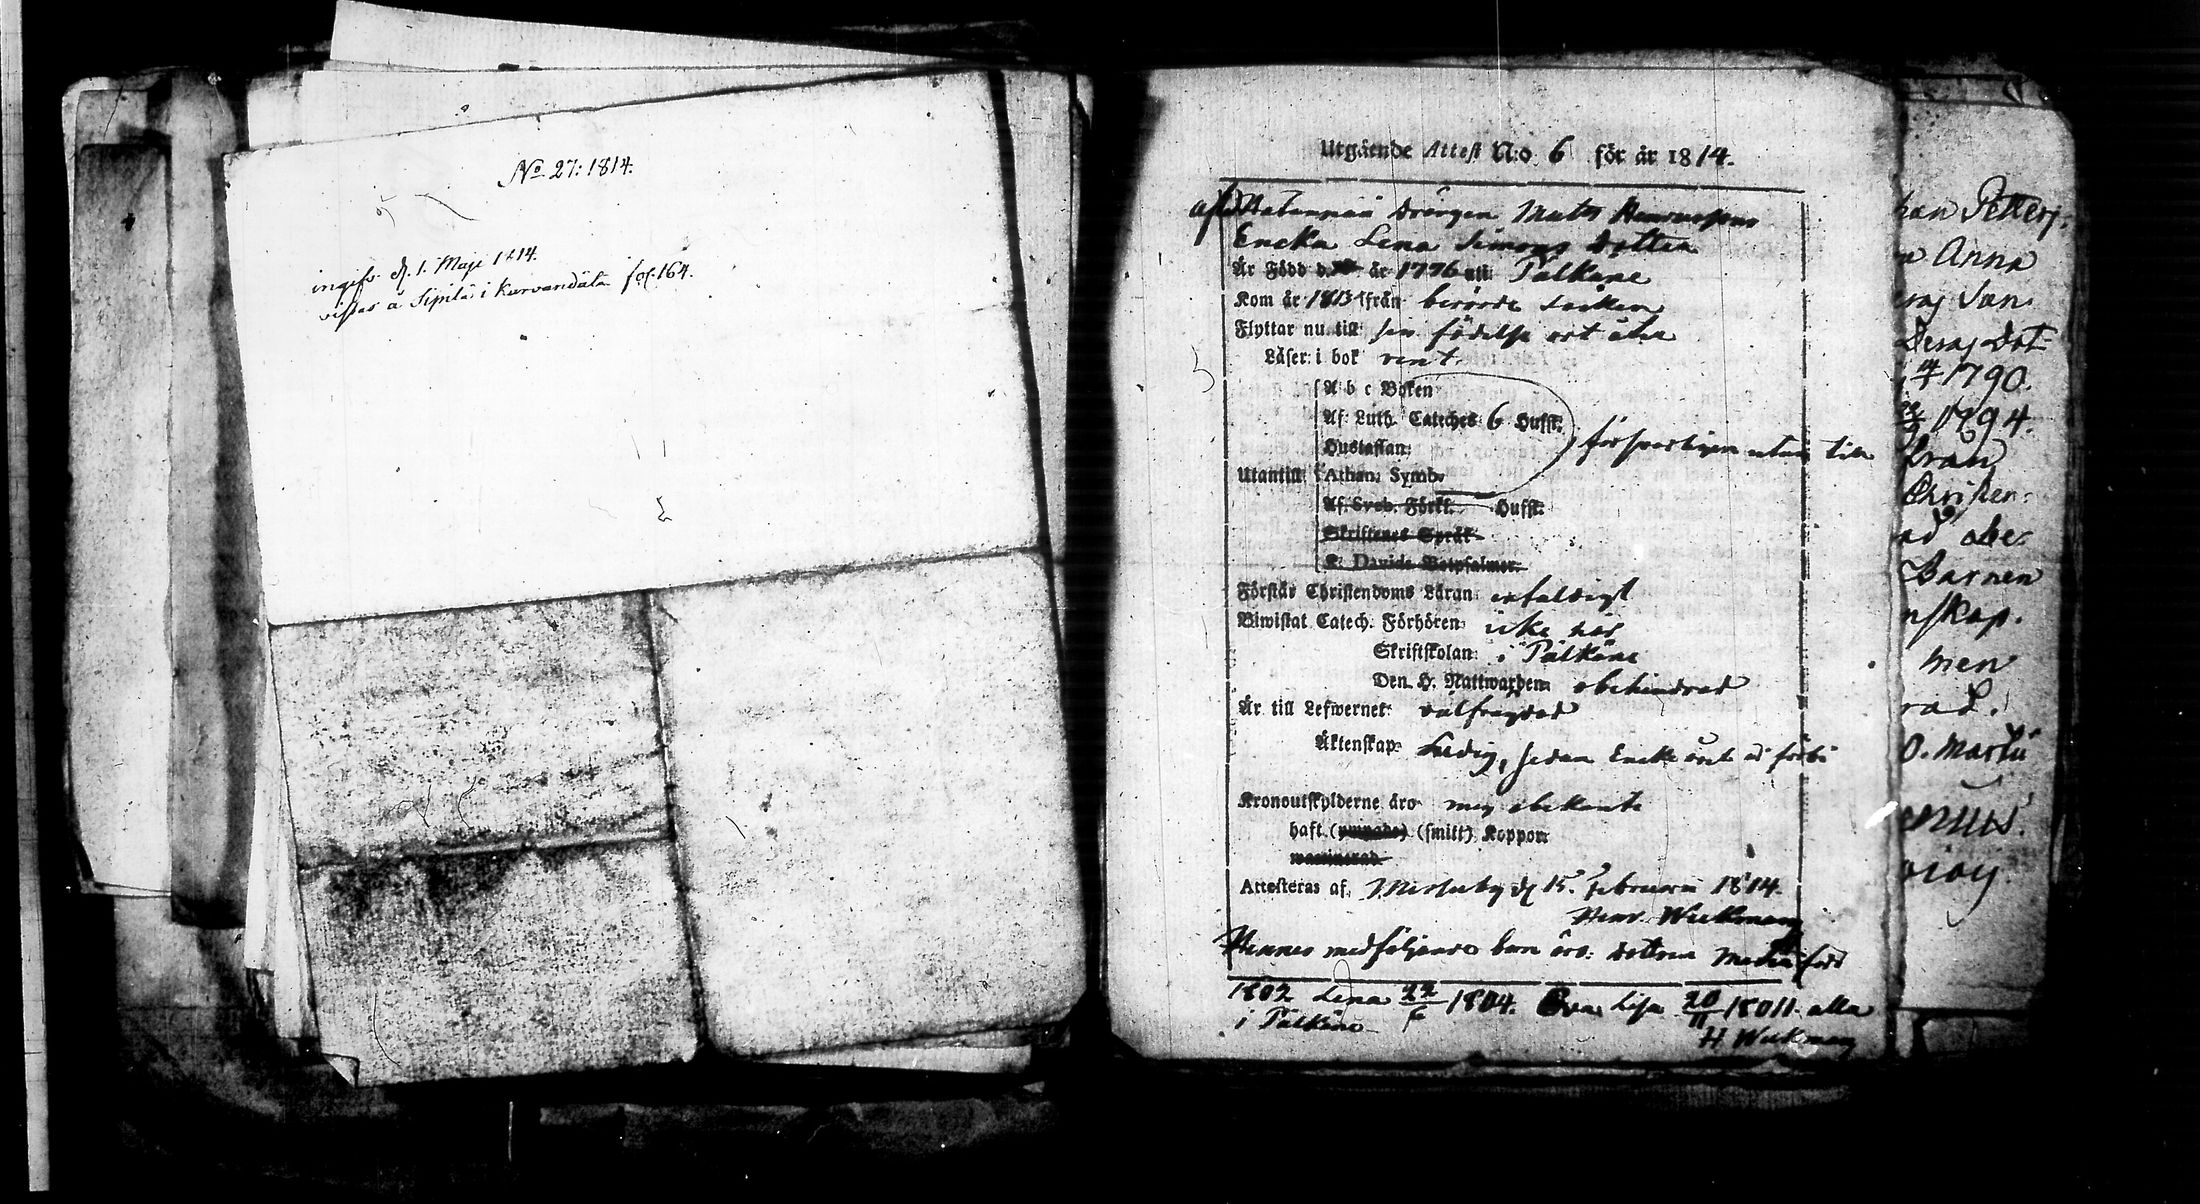 No 27: 1814.
ingifv. d. 1. Maji 1814.
vistas å Sipilä i Kurvandala fol. 164.
Utgående Attest N:o 6 för år 1814.
afl. Drängen Mats
Encka Lena Simons Dotter
Är Född d. år 1776 uti Pälkäne
Kom år 1813 ifrån berörde Socken
Flyttar nu till sin födelse ort åter
Läser: i bok rent
A b c Boken
Af Luth. Cateches 6 Hufst.
Hustaflan:
försvarligen utan till
Utantill: Athan. Symb.
Af. Sveb. Förkl. Hufst.
Skriftenes Språk
K. Davids Botpsalmer.
Förstår Christendoms Läran: enfaldigt
Biwistat Catech. Förhören: icke här
Skriftskolan: i Pälkäne
Den H. Nattwarden: obehindrad
Är till Lefwernet: välfrägdad
Äktenskap: Ledig, sedan Encke året är förbi
Kronoutskylderne äro mig obekante
haft (ympade) (smitt) Koppor
waccinerad
Attesteras af, d. 15. Februarii 1814.
Henr. Wickman
Hennes medföljande barn äro: dottren Maria född
1802 Lena 22/ 1804. Eva Lisa 20/11 alla
i Pälkäne
H Wickman
han Petters
Anna
Son
Deras Dot=
1790.
1794.
från
Christen=
Barnen
nskap.
men
rad.
Martii